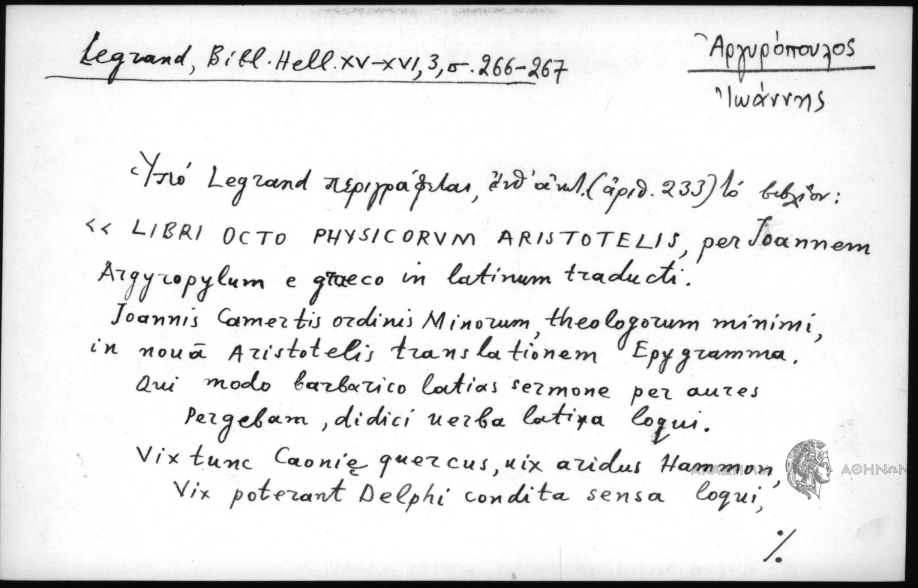 Legrand, Bibl. Hell. XV-XVI, 3, σ. 266-267
Ἀργυρόπουλος
Ἰωάννης
Ὑπό Legrand περιγράφεται, (ἀριθ. 233) τό βιβλίον:
<< LIBRI OCTO PHYSICORVM ARISTOTELIS, per Joannem
Argyropylum e graeco in latinum traducti.
Joannis Camertis ordinis Minorum, theologorum minimi,
in nouā Aristotelis translationem Epygramma.
Qui modo barbarico latias sermone per aures
Pergebam, didici uerba latina loqui.
Vix tunc Caonię quercus, uix aridus Hammon,
Vix poterant Delphi condita sensa loqui,
ΑΚΑΔΗΜΙΑ ΑΘΗΝΩΝ
%